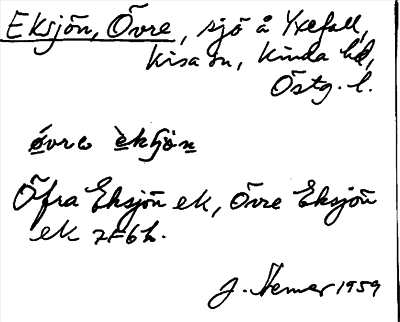 Eksjön, Övre, sjö å Yxefall,
Kisa sn, Kinda hd,
Östg. l.
övre eksjön
Öfra Eksjön ek, Övre Eksjön
ek 7F6h.
J. Nemer 1959